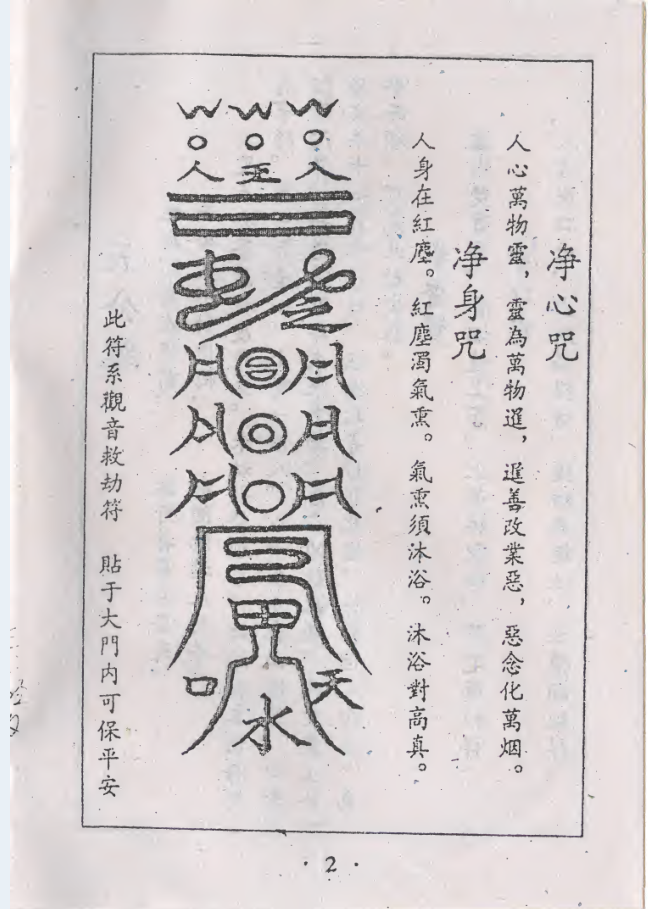 净心咒
人心萬物靈，靈為萬物，善改業惡，惡念化萬烟。
净身咒
人身在紅塵。紅塵濁氣熏。氣熏須沐浴。沐浴對高真。
人 王 人
口 天
水
此符系觀音救劫符 貼于大門内可保平安
· 2 ·